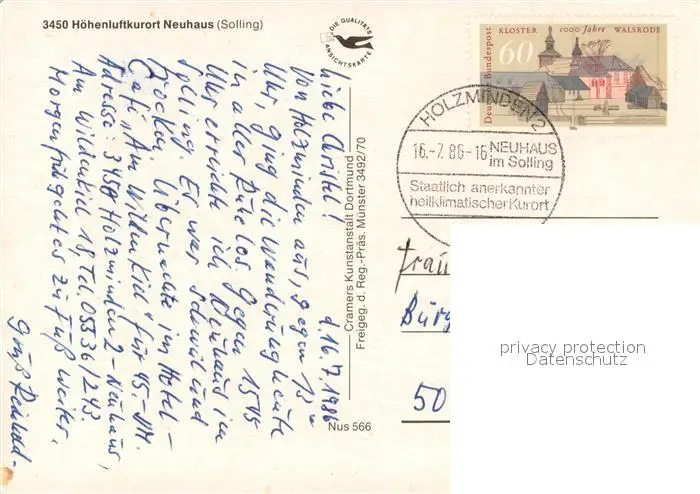 3450 Höhenluftkurort Neuhaus (Solling)
DIE QUALITÄTS
ANSICHTSKARTE
KLOSTER 1000 Jahre WALSRODE
60
Deutsche Bundespost
HOLZMINDEN 2
16.-7.86-16
NEUHAUS
im Solling
Staatlich anerkannter
heilklimatischer Kurort
d. 16.7.1986
Liebe Christel!
Von Holzminden aus, gegen 13⁰⁰
Uhr, ging die Wanderung heute
in aller Ruhe los. Gegen 15⁴⁵
Uhr erreichte ich Neuhaus im
Solling. Es war schwül und
trocken. Übernachte im Hotel-
Café "Am Wildenkiel" für 45.- DM.
Adresse: 3450 Holzminden 2 - Neuhaus,
Am Wildenkiel 18, Tel. 05536/243.
Morgen früh geht es zu Fuß weiter.
Gruß Reinhold.
Cramers Kunstanstalt Dortmund
Freigeg. d. Reg.-Präs. Münster 3492/70
Nus 566
Frau
Bürg
50
privacy protection
Datenschutz